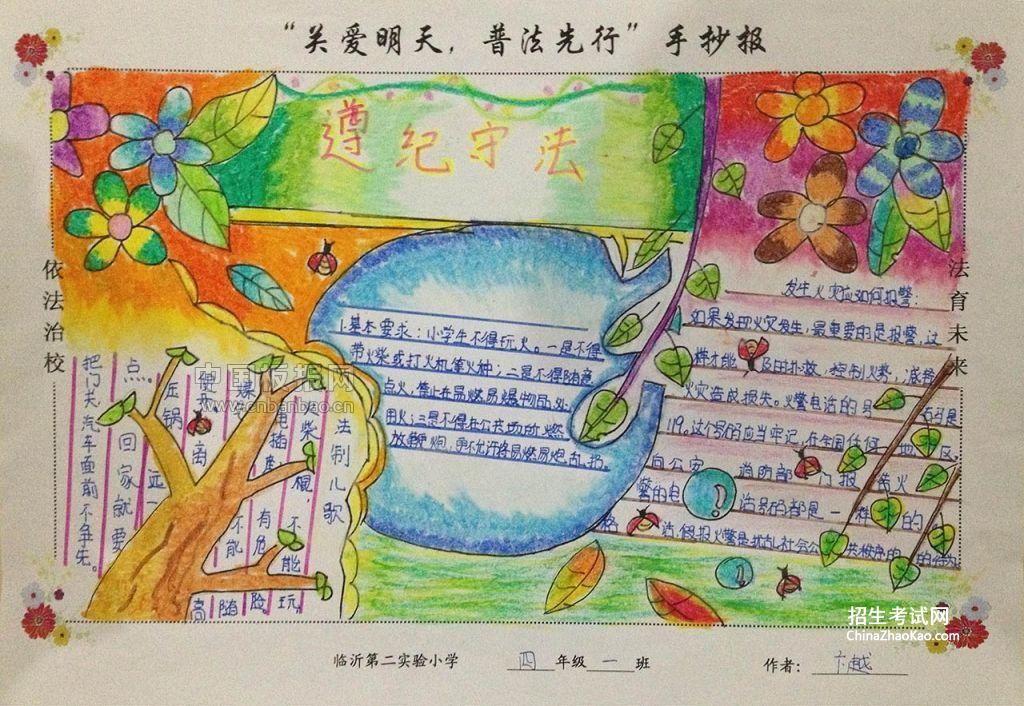 “关爱明天，普法先行”手抄报
遵纪守法
依法治校
法育未来
1.基本要求：小学生不得玩火。一是不得
带火柴或打火机等火种；二是不得随意
点火，
用火；三是不得在公共场所燃
放鞭炮，
发生火灾应如何报警：
如果发现火灾发生，最重要的是报警，这
样才能及时扑救，控制火势，减轻
火灾造成损失。火警电话的号码是
119。这个号码应当牢记，在全国任何地区，
向公安消防部门报告火
警的电话号码都是一样的
假报火警是扰乱社会公共秩序的
法制儿歌
火柴棍，不能玩，
煤电插座有危险
不能随
高压锅
远一点。
回家就要
把门关，汽车面前不争先。
中国板报网
www.cnbanbao.cn
招生考试网
ChinaZhaoKao.com
临沂第二实验小学 四年级一班 作者：卞越